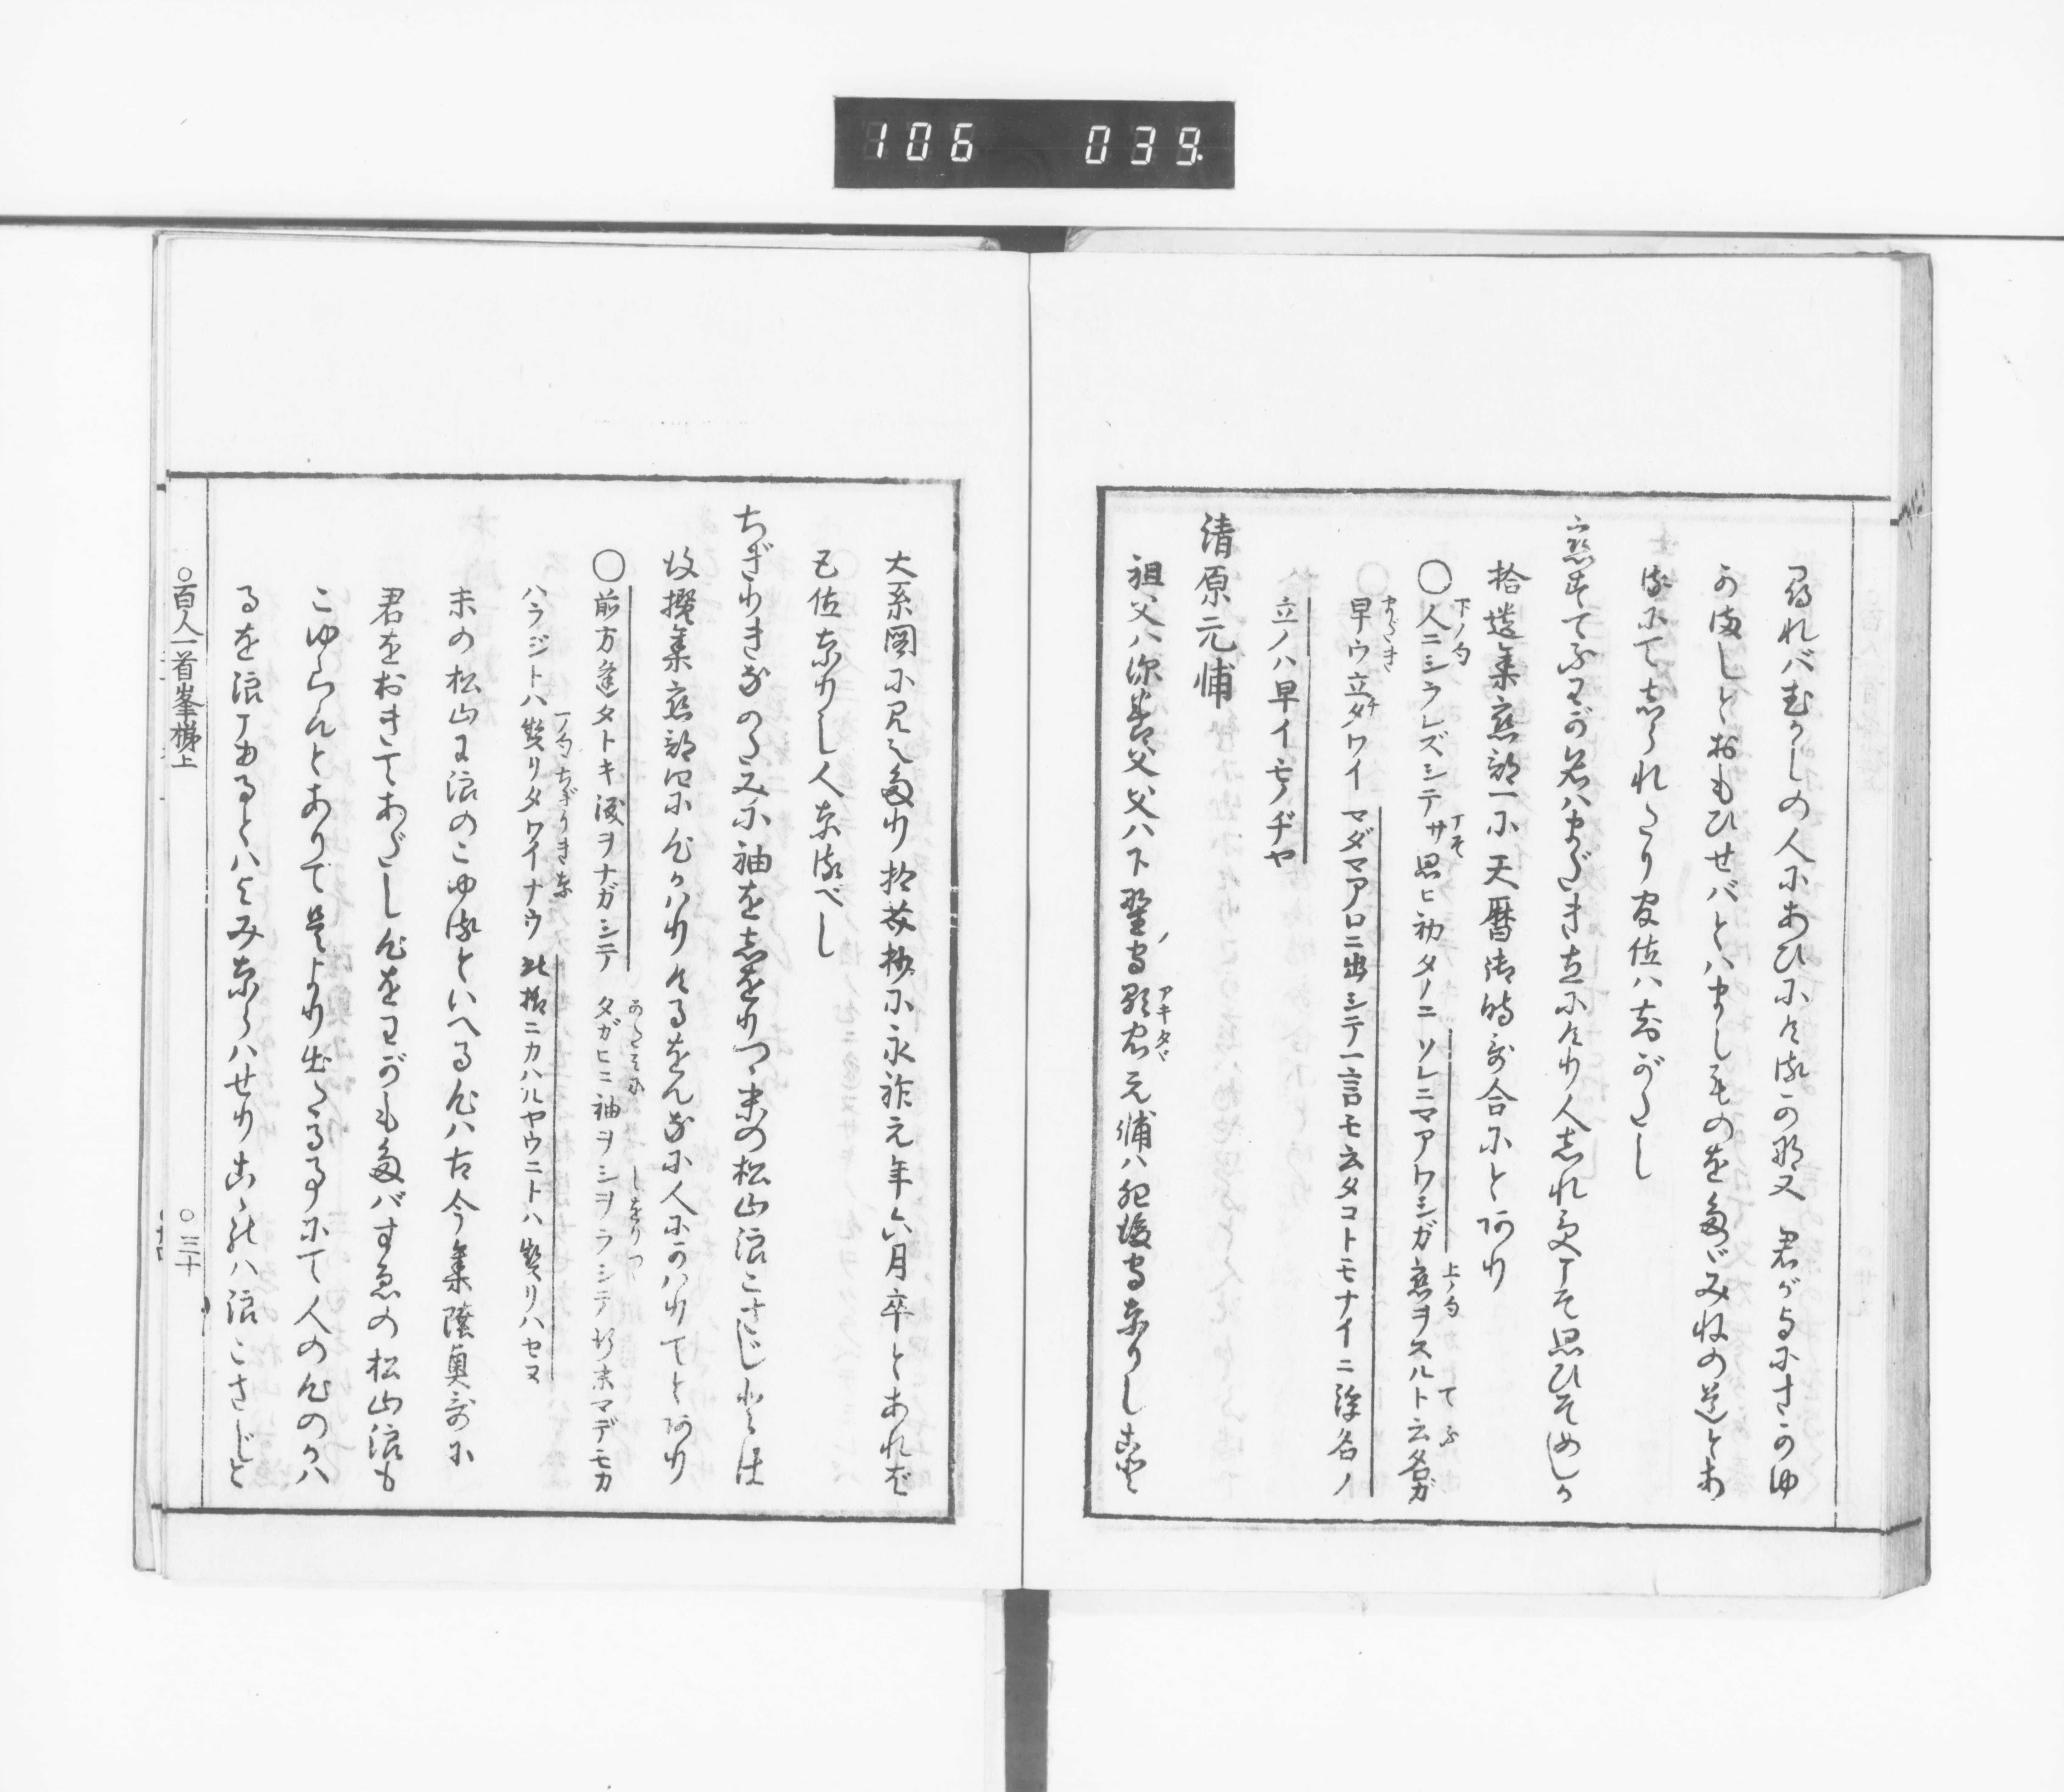 106 039
尋ればむかしの人にあひにける かな又 君がよにすかのゆ
かましとおもひせばとはましものをたゞみねの道とあ
るにてしられたり官位は知がたし
恋すてふわが名はまだき立にけり人しれずこそ思ひそめしか
拾遺集恋部一に天暦御時歌合にとあり
〇人ニシラレズシテサ思ヒ初タノニソレニマアワシガ恋ヲスルト云名ガ
下ノ句
コそ
上ノ句
てふ
早ウ立タワイマダマアロニ出シテ一言モ云タコトモナイニ浮名ノ
まだき
チ
立ノハ早イモノヂヤ
清原元輔
祖父ハ深養父父ハ下野守顕忠元輔ハ肥後守なりしこと
アキタヾ
大系図に見えたり拾芥抄に永祚元年六月卒とあれば
五位なりし人なるべし
ちぎりきなかたみに袖をしぼりつゝ末の松山浪こさじとは
後撰集恋部四に心かはりける をんなに人にかはりてとあり
〇前方逢タトキ涙ヲナガシテタガヒニ袖ヲシヲラシテ行末マデモカ
かたみに
しをりつゝ
ハラジトハ契リタワイナウ此様ニカハルヤウニトハ契リハセヌ
一ノ句ちぎりきな
末の松山を浪のこゆるといへる心ハ古今集陸奥歌に
君をおきてあだし心をわがもたばすゑの松山浪も
こゆらんとありて是より出たる事にて人の心のかは
るを浪こゆるとはよみならはせりこゝにハ浪こさじと
〇百人一首峯梯上
〇三十